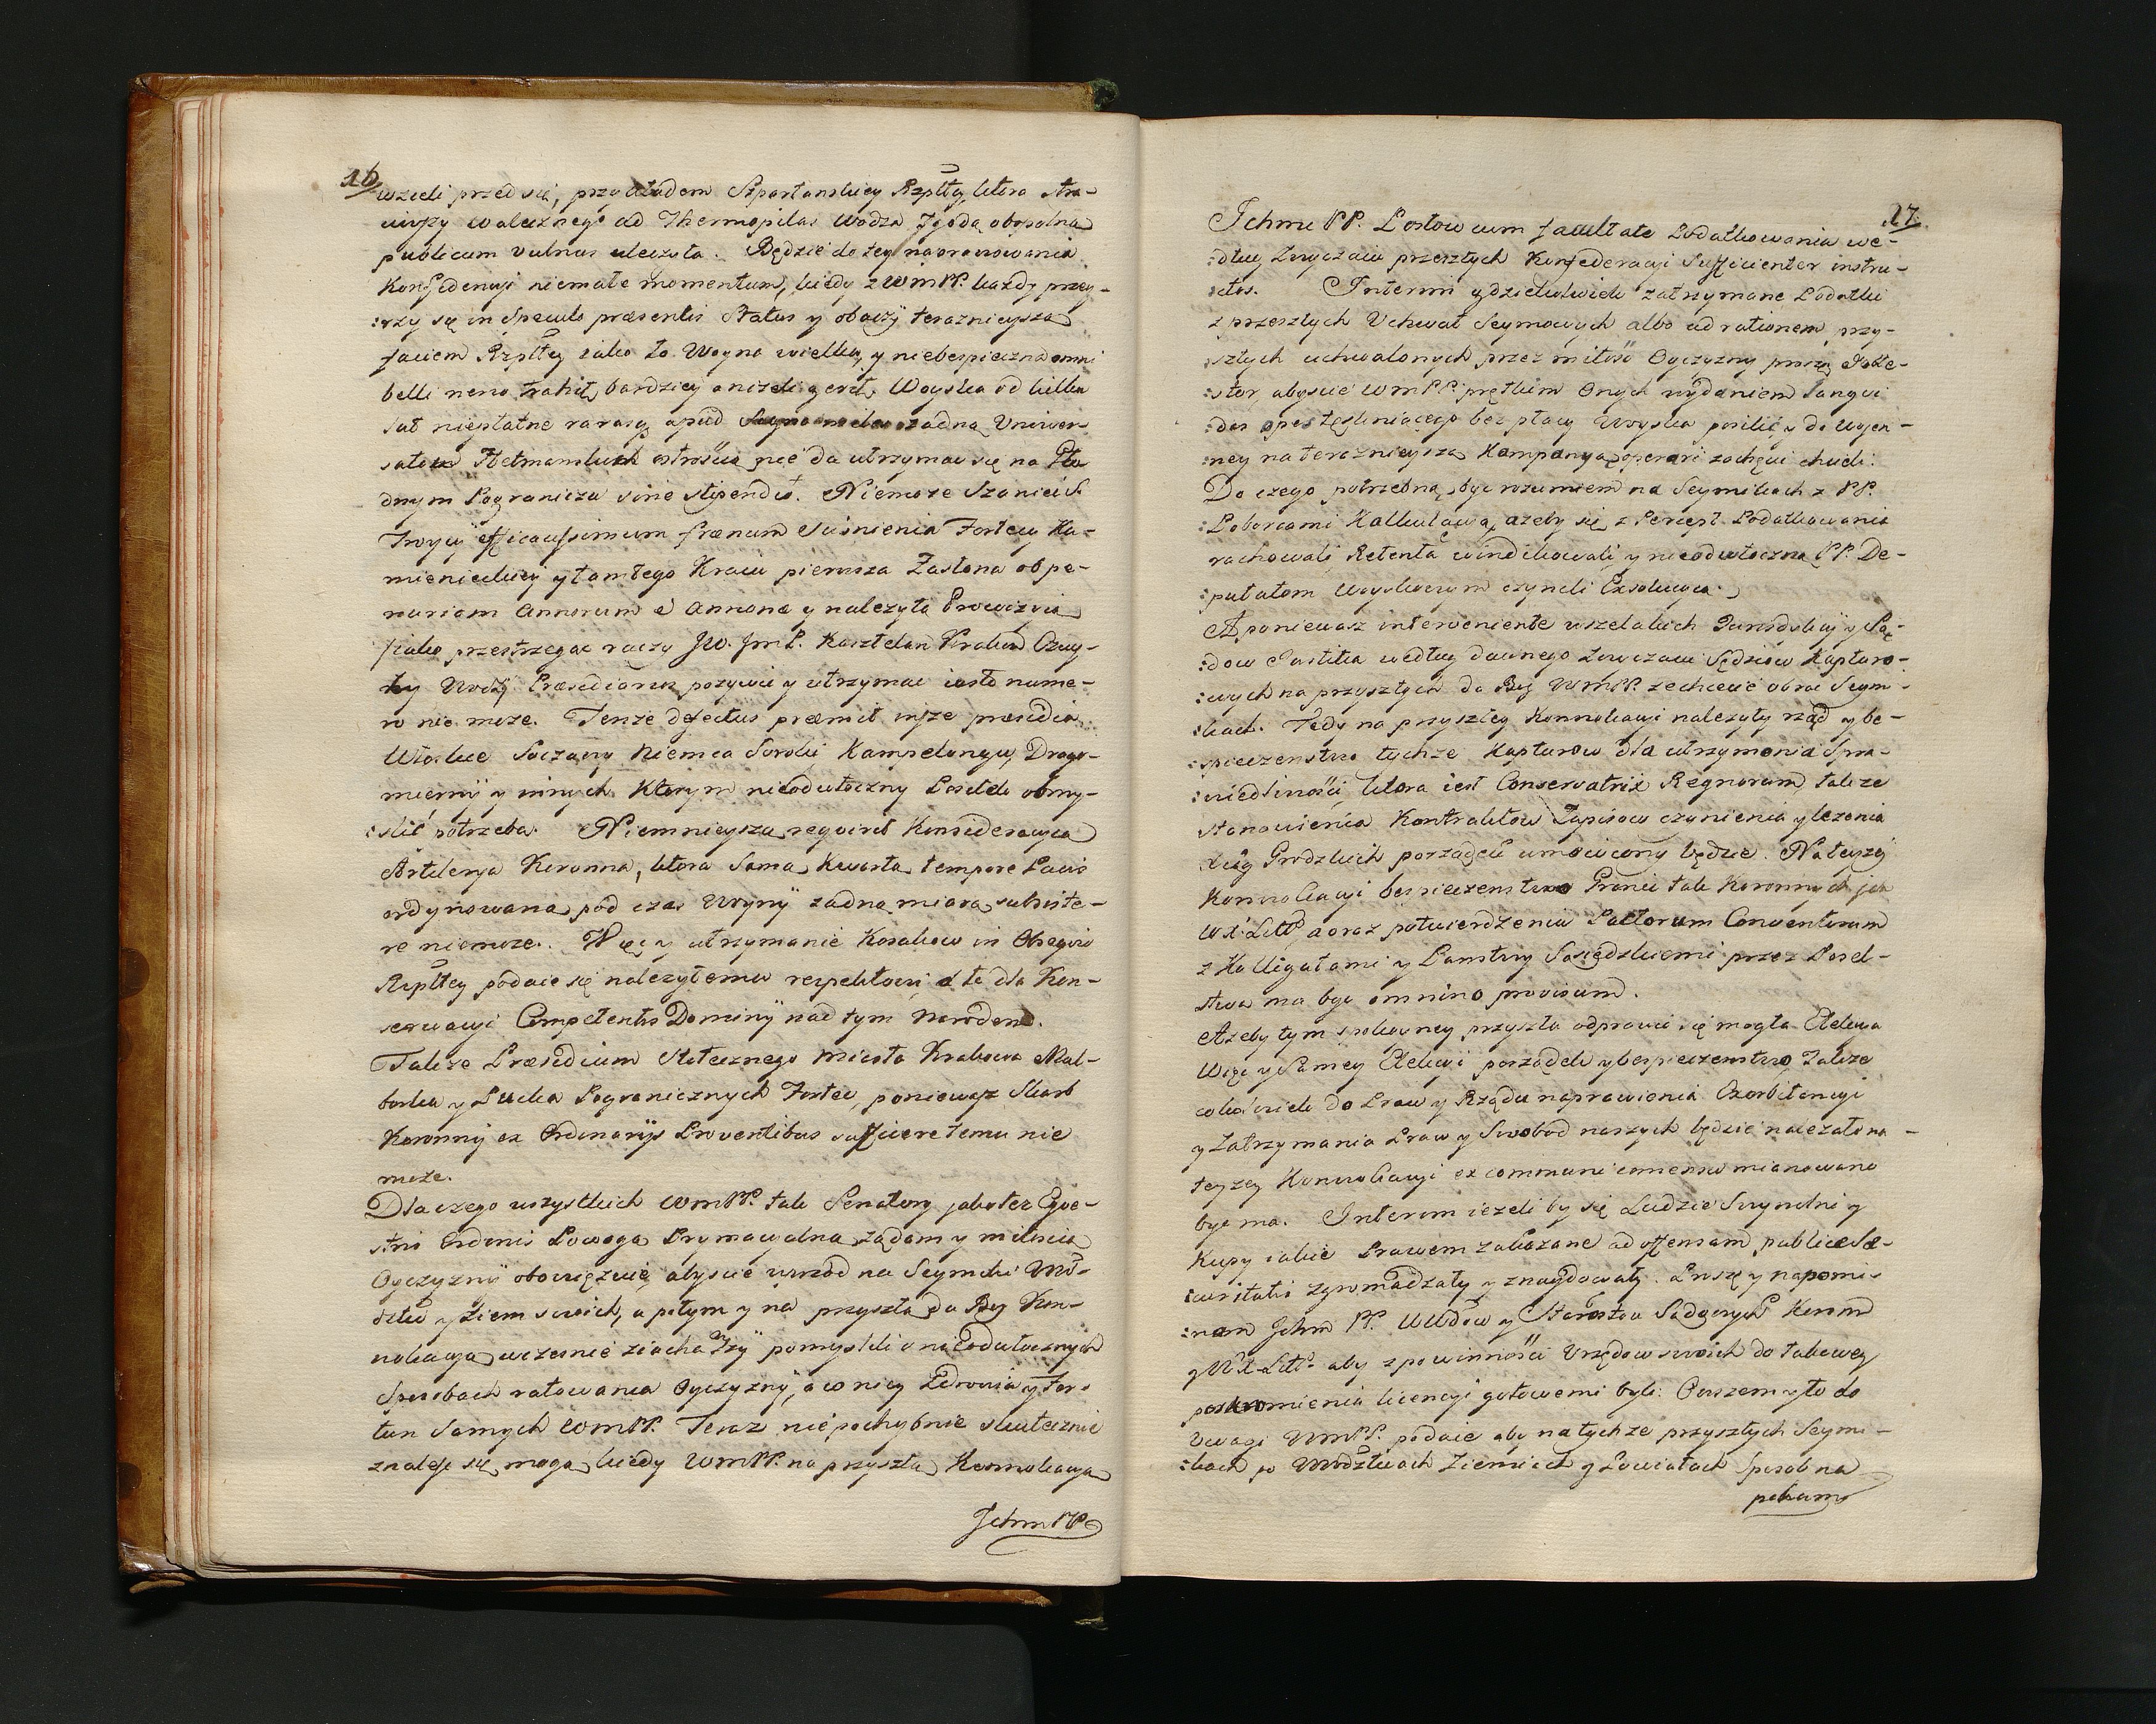 16
wzieli przed się, przykładem Szpartańskiey Rzpltey, ktora stra-
ciwszy walecznego ad Thermopilas Wodza Zgodą obopolną
publicum vulnus uleczyła. Będzie do tey naprawowania
Konfederacyi niemałe momentum, kiedy z WmPP. każdy przey-
:rzy się in Speculo præsentis Status y obaczÿ terazniejszą
faciem Rzpltey iako ta Woyna wielka, y niebespieczna omni
belli nervo trahit, bardziey aniżeli gerit, Woyska od kilku
lat niepłatne raras apud żadną Uniwer-
sałow Hetmanskich ostrością nie da utrzymać się na Gło-
dnym Pograniczu sine stipendio. Niemoże Szaniec S.
Troycy efficacissimum frænum ciśnienia Fortecy Ka-
mienieckiey y tamtego Kraiu pierwsza Zasłona ob pe-
nuriam Annorum et annonæ y należytą Prowizyią
iako przestrzegać raczy JW. JmP. Kasztelan Krakow. Czuy-
ny Wodz. Præsidiarios pozywić y utrzymać iusto nume-
ro nie może. Tenże defectus præmit insze præsidia
Włoskie Soczawy Niemca Soroki Kampelongu, Drago-
miernÿ y innych Ktorym nieodwłoczny Posiłek obmy-
:slić potrzeba. Niemnieysza requirit Konsideracyia
Artilerya Koronna, ktora Sama Kwarta tempore Pacis
ordynowana pod czas Woyny żadną miarą subsiste-
re niemoże. Więc y utrzymanie Kozakow in Obsequio
Rzpltey podaie się należytemu respektowi a to dla Kon-
serwacyi Competentis Dominÿ nad tym Narodem.
Także Præsidium Stołecznego Miasta Krakowa Mal-
borka y Pucka Pogranicznych Fortec, ponieważ Skarb
Koronny ex Ordinarijs Proventibus sufficere temu nie
może.
Dla czego wszystkich WmPP. tak Senatory jako też Eque-
stris Ordinis Powagą Prymacyalną żądam y miłością
Oyczyzny obowięzuię, abyscie wrzod na Seymiki Wo-
dztw y Ziem swoich, a potym y na przyszłą da Bog Kon-
wokacyą wczesnie ziachawszÿ pomyslili o nieodwłocznych
Sposobach ratowania Oyczyzny, a w niey Zdrowia y For-
tun Samych WmPP. Teraz niepochybnie skutecznie
znalesc się mogą, kiedy WmPP. na przyszłą Konwokacyą
Jchm PP.
17.
Jchmc PP. Posłow cum facultate Podatkowania we-
:dług Zwyczaiu przeszłych Konfederacyi Sufficienter instru-
:ctos. Interim gdziekolwiek zatrzymane Podatki
z przeszłych Uchwał Seymowych albo ad rationem przy-
szłych uchwalonych przez miłość Oyczyzny proszę Obte-
:stor, abyscie WmPP. prętkim Onych wydaniem Sangui
:das opes tęskniącego bez płacy Woyska posilić, y do woien-
:ney na terazniejszą Kampanyą operari zachęcić chcieli.
Do czego potrzebną być rozumiem na Seymikach z PP.
:Poborcami Kalkulacyą, ażeby się z Percept Podatkowania
rachowali, Retenta windikowali, y nieodwłoczną PP. De-
:putatom Woyskowym czynili Exsolucyą.
A ponieważ interveniente wszelakich Jurisdykcÿ y Są-
:dow Justitia według dawnego zwyczaiu Sędziow Kapturo-
:wych na przyszłych da Bog WmPP. zechcecie obrać Seymi-
:kach. Tedy na przyszłey Konwokacyi należyty rząd y be-
:spieczenstwo tychże Kapturow dla utrzymania Spra-
:wiedliwości, ktora iest Conservatrix Regnorum, także
stanowienia Kontraktow Zapisow czynienia y leżenia
Xiąg Grodzkich porządek umowiony będzie. Na teyżey
Konwokacyi bespieczenstwo Granic tak Koronnych jak
W.X. Litt. a oraz potwierdzenie Pactorum Conventorum
z Kolligatami y Panstwy Sasiedzkiemi przez Posel-
stwa ma być omnino provisum.
Ażeby tym spokoyney przyszła odprawić się mogła Elekcya
Więc y Samey Elekcyi porządek y bespieczenstwo, Także
cokolwiek do Praw y Rządu naprawienia Exorbitancyi
y Zatrzymania Praw y Swobod naszych będzie należało na-
teyżey Konwokacyi ex communi consensu mianowano
być ma. Interim ieżeliby się Ludzie Swywolni y
Kupy iakie Prawem zakazane ad offensam publicæ Se-
:curitatis zgromadzały y znaydowały. Proszę y napomi-
:nam Jchm PP. WWdow y Starostow Sądowych Koronn
y W.X. Litt. aby z powinności Urzędow swoich do takowey
poskromienia licencyi gotowemi byli. Owszem y to do
Uwagi WmPP. podaię aby na tychże przyszłych Seymi-
:kach po Wodztwach Ziemiach y Powiatach sposob na
pohamo